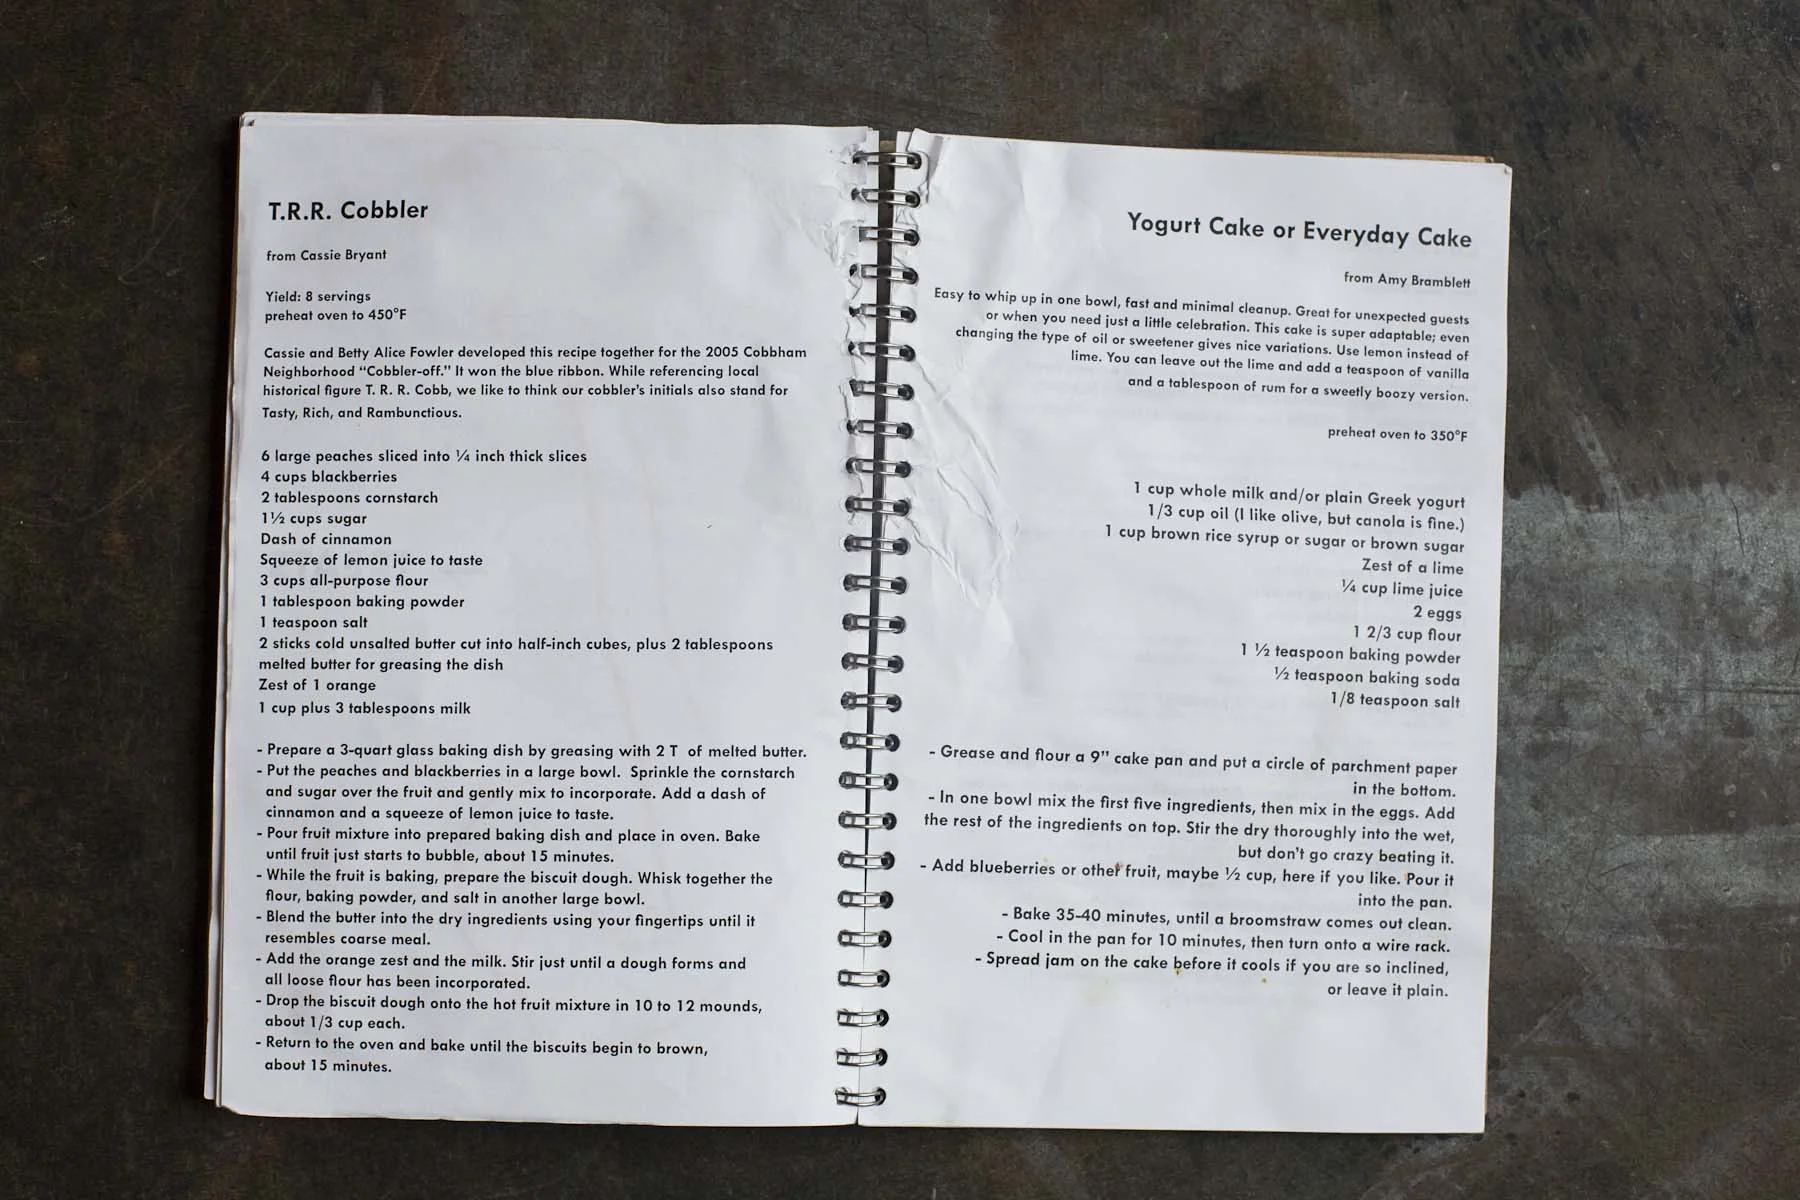 T.R.R. Cobbler
from Cassie Bryant
Yield: 8 servings
preheat oven to 450°F
Cassie and Betty Alice Fowler developed this recipe together for the 2005 Cobbham
Neighborhood “Cobbler-off.” It won the blue ribbon. While referencing local
historical figure T. R. R. Cobb, we like to think our cobbler’s initials also stand for
Tasty, Rich, and Rambunctious.
6 large peaches sliced into ¼ inch thick slices
4 cups blackberries
2 tablespoons cornstarch
1½ cups sugar
Dash of cinnamon
Squeeze of lemon juice to taste
3 cups all-purpose flour
1 tablespoon baking powder
1 teaspoon salt
2 sticks cold unsalted butter cut into half-inch cubes, plus 2 tablespoons
melted butter for greasing the dish
Zest of 1 orange
1 cup plus 3 tablespoons milk
- Prepare a 3-quart glass baking dish by greasing with 2 T of melted butter.
- Put the peaches and blackberries in a large bowl. Sprinkle the cornstarch
and sugar over the fruit and gently mix to incorporate. Add a dash of
cinnamon and a squeeze of lemon juice to taste.
- Pour fruit mixture into prepared baking dish and place in oven. Bake
until fruit just starts to bubble, about 15 minutes.
- While the fruit is baking, prepare the biscuit dough. Whisk together the
flour, baking powder, and salt in another large bowl.
- Blend the butter into the dry ingredients using your fingertips until it
resembles coarse meal.
- Add the orange zest and the milk. Stir just until a dough forms and
all loose flour has been incorporated.
- Drop the biscuit dough onto the hot fruit mixture in 10 to 12 mounds,
about 1/3 cup each.
- Return to the oven and bake until the biscuits begin to brown,
about 15 minutes.
Yogurt Cake or Everyday Cake
from Amy Bramblett
Easy to whip up in one bowl, fast and minimal cleanup. Great for unexpected guests
or when you need just a little celebration. This cake is super adaptable; even
changing the type of oil or sweetener gives nice variations. Use lemon instead of
lime. You can leave out the lime and add a teaspoon of vanilla
and a tablespoon of rum for a sweetly boozy version.
preheat oven to 350°F
1 cup whole milk and/or plain Greek yogurt
1/3 cup oil (I like olive, but canola is fine.)
1 cup brown rice syrup or sugar or brown sugar
Zest of a lime
¼ cup lime juice
2 eggs
1 2/3 cup flour
1 ½ teaspoon baking powder
½ teaspoon baking soda
1/8 teaspoon salt
- Grease and flour a 9” cake pan and put a circle of parchment paper
in the bottom.
- In one bowl mix the first five ingredients, then mix in the eggs. Add
the rest of the ingredients on top. Stir the dry thoroughly into the wet,
but don’t go crazy beating it.
- Add blueberries or other fruit, maybe ½ cup, here if you like. Pour it
into the pan.
- Bake 35-40 minutes, until a broomstraw comes out clean.
- Cool in the pan for 10 minutes, then turn onto a wire rack.
- Spread jam on the cake before it cools if you are so inclined,
or leave it plain.